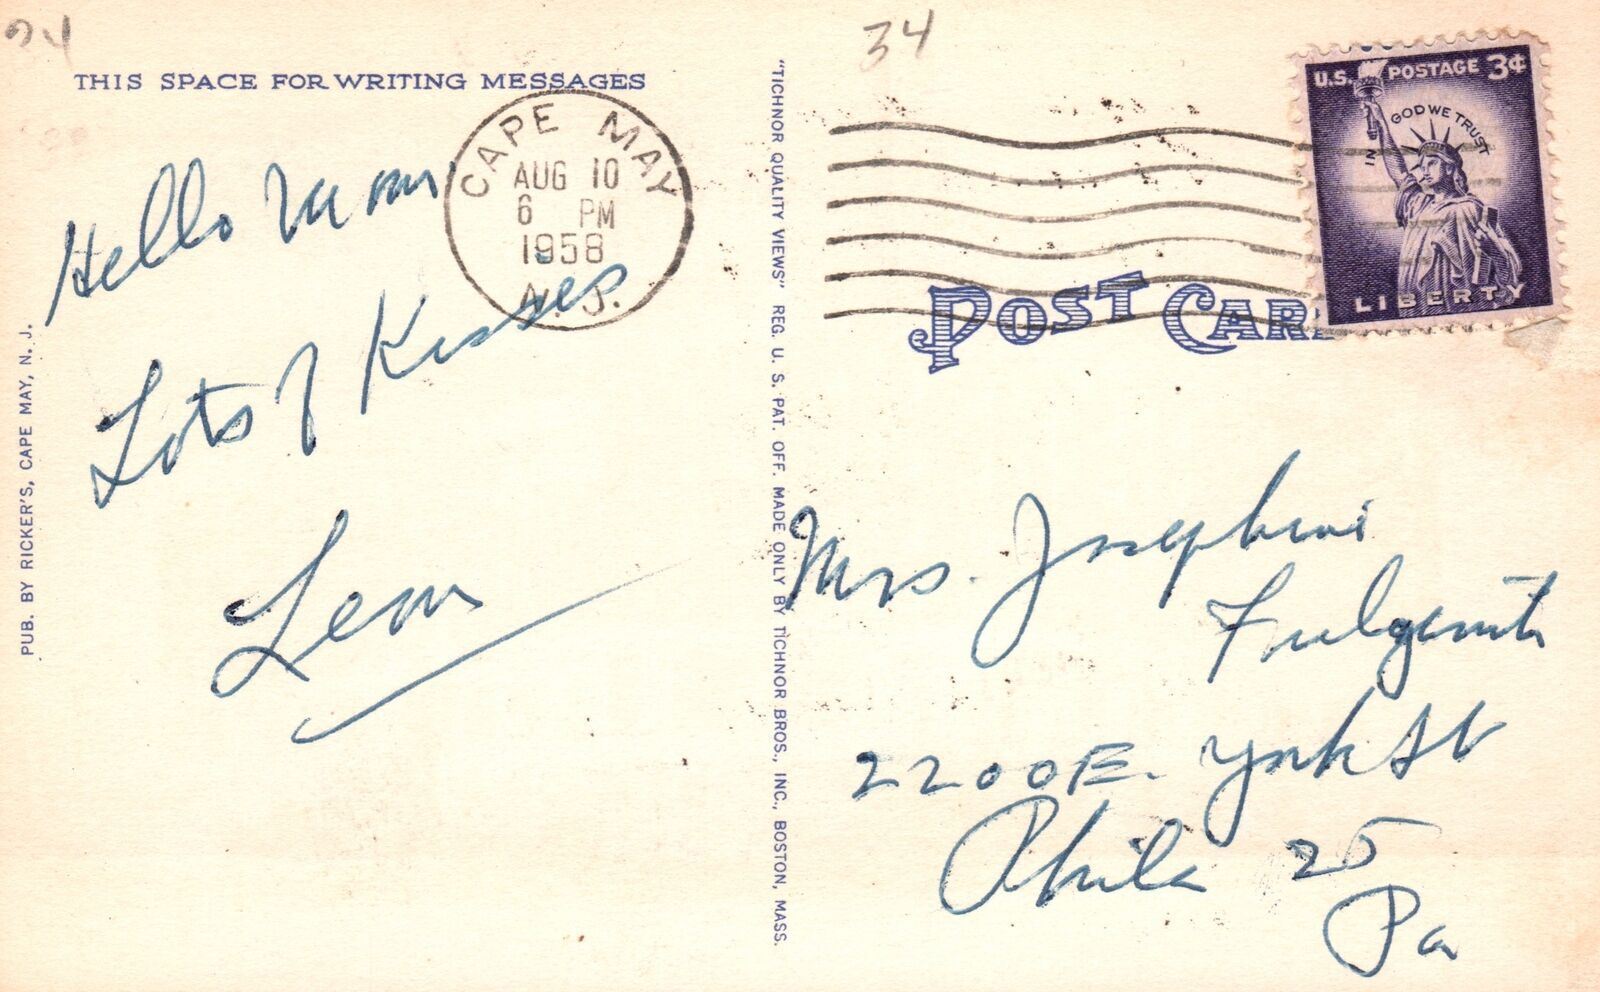 34
THIS SPACE FOR WRITING MESSAGES
CAPE MAY
AUG 10
6 PM
1958
N.J.
Hello Mom
Lots of Kisses
Leon
PUB. BY RICKER'S, CAPE MAY, N. J.
"TICHNOR QUALITY VIEWS" REG. U. S. PAT. OFF. MADE ONLY BY TICHNOR BROS., INC., BOSTON, MASS.
U.S. POSTAGE 3¢
IN GOD WE TRUST
LIBERTY
POST CAR
Mrs. Josephine
2200 E. York St
Phila 25
Pa